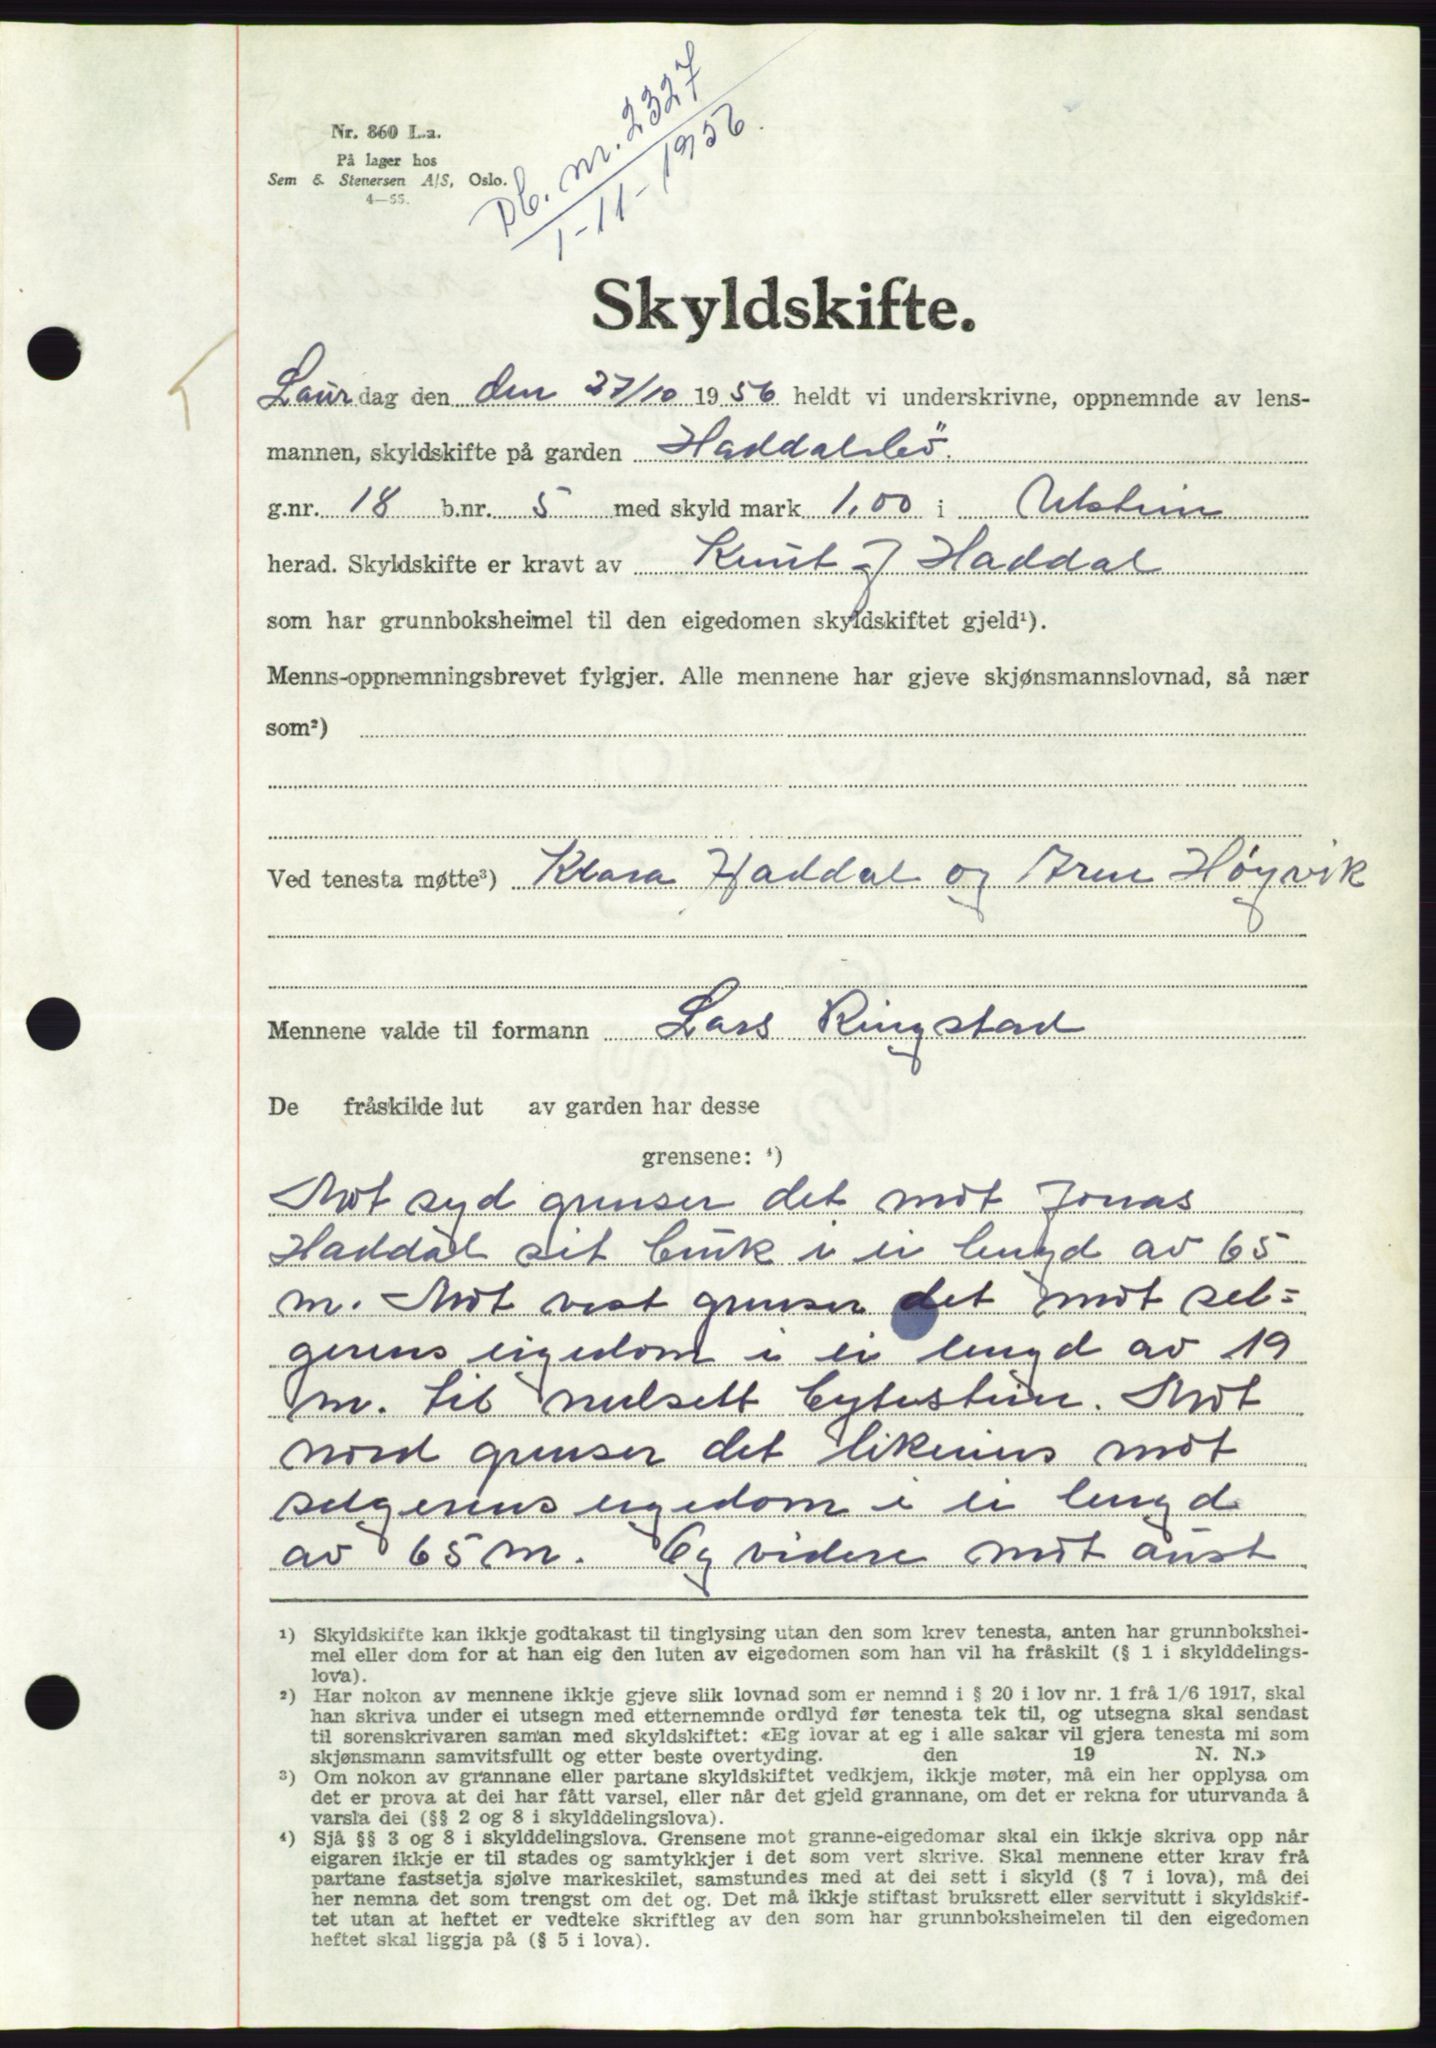 Nr. 860 L.a.
På lager hos
Sem & Stenersen A/S, Oslo.
4—55.
Db. nr. 2327
1-11-1956.
Skyldskifte.
Laurdag den den 27/10 1956 heldt vi underskrivne, oppnemnde av lens-
mannen, skyldskifte på garden Haddalsbö.
g.nr. 18 b.nr. 5 med skyld mark 1,00 i Ulstein
herad. Skyldskifte er kravt av Knut J Haddal
som har grunnboksheimel til den eigedomen skyldskiftet gjeld¹).
Menns-oppnemningsbrevet fylgjer. Alle mennene har gjeve skjønsmannslovnad, så nær
som²)
Ved tenesta møtte³) Klara Haddal og Arne Høyvik
Mennene valde til formann Lars Ringstad
De fråskilde lut av garden har desse
grensene: ⁴)
Mot syd grenser det mot Jonas
Haddal sit bruk i ei lengd av 65
m. Mot vest grenser det mot sel=
gerens eigedom i ei lengd av 19
m. til nedsett bytestein. Mot
nord grenser det likeeins mot
selgerens eigedom i ei lengd
av 65 m. Og videre mot aust
¹) Skyldskifte kan ikkje godtakast til tinglysing utan den som krev tenesta, anten har grunnbokshei-
mel eller dom for at han eig den luten av eigedomen som han vil ha fråskilt (§ 1 i skylddelings-
lova).
²) Har nokon av mennene ikkje gjeve slik lovnad som er nemnd i § 20 i lov nr. 1 frå 1/6 1917, skal
han skriva under ei utsegn med etternemnde ordlyd før tenesta tek til, og utsegna skal sendast
til sorenskrivaren saman med skyldskiftet: «Eg lovar at eg i alle sakar vil gjera tenesta mi som
skjønsmann samvitsfullt og etter beste overtyding. den 19 N. N.»
³) Om nokon av grannane eller partane skyldskiftet vedkjem, ikkje møter, må ein her opplysa om
det er prova at dei har fått varsel, eller når det gjeld grannane, om det er rekna for uturvanda å
varsla dei (§§ 2 og 8 i skylddelingslova).
⁴) Sjå §§ 3 og 8 i skylddelingslova. Grensene mot granne-eigedomar skal ein ikkje skriva opp når
eigaren ikkje er til stades og samtykkjer i det som vert skrive. Skal mennene etter krav frå
partane fastsetja sjølve markeskilet, samstundes med at dei sett i skyld (§ 7 i lova), må dei
her nemna det som trengst om det og. Det må ikkje stiftast bruksrett eller servitutt i skyldskif-
tet utan at heftet er vedteke skriftleg av den som har grunnboksheimelen til den eigedomen
heftet skal liggja på (§ 5 i lova).